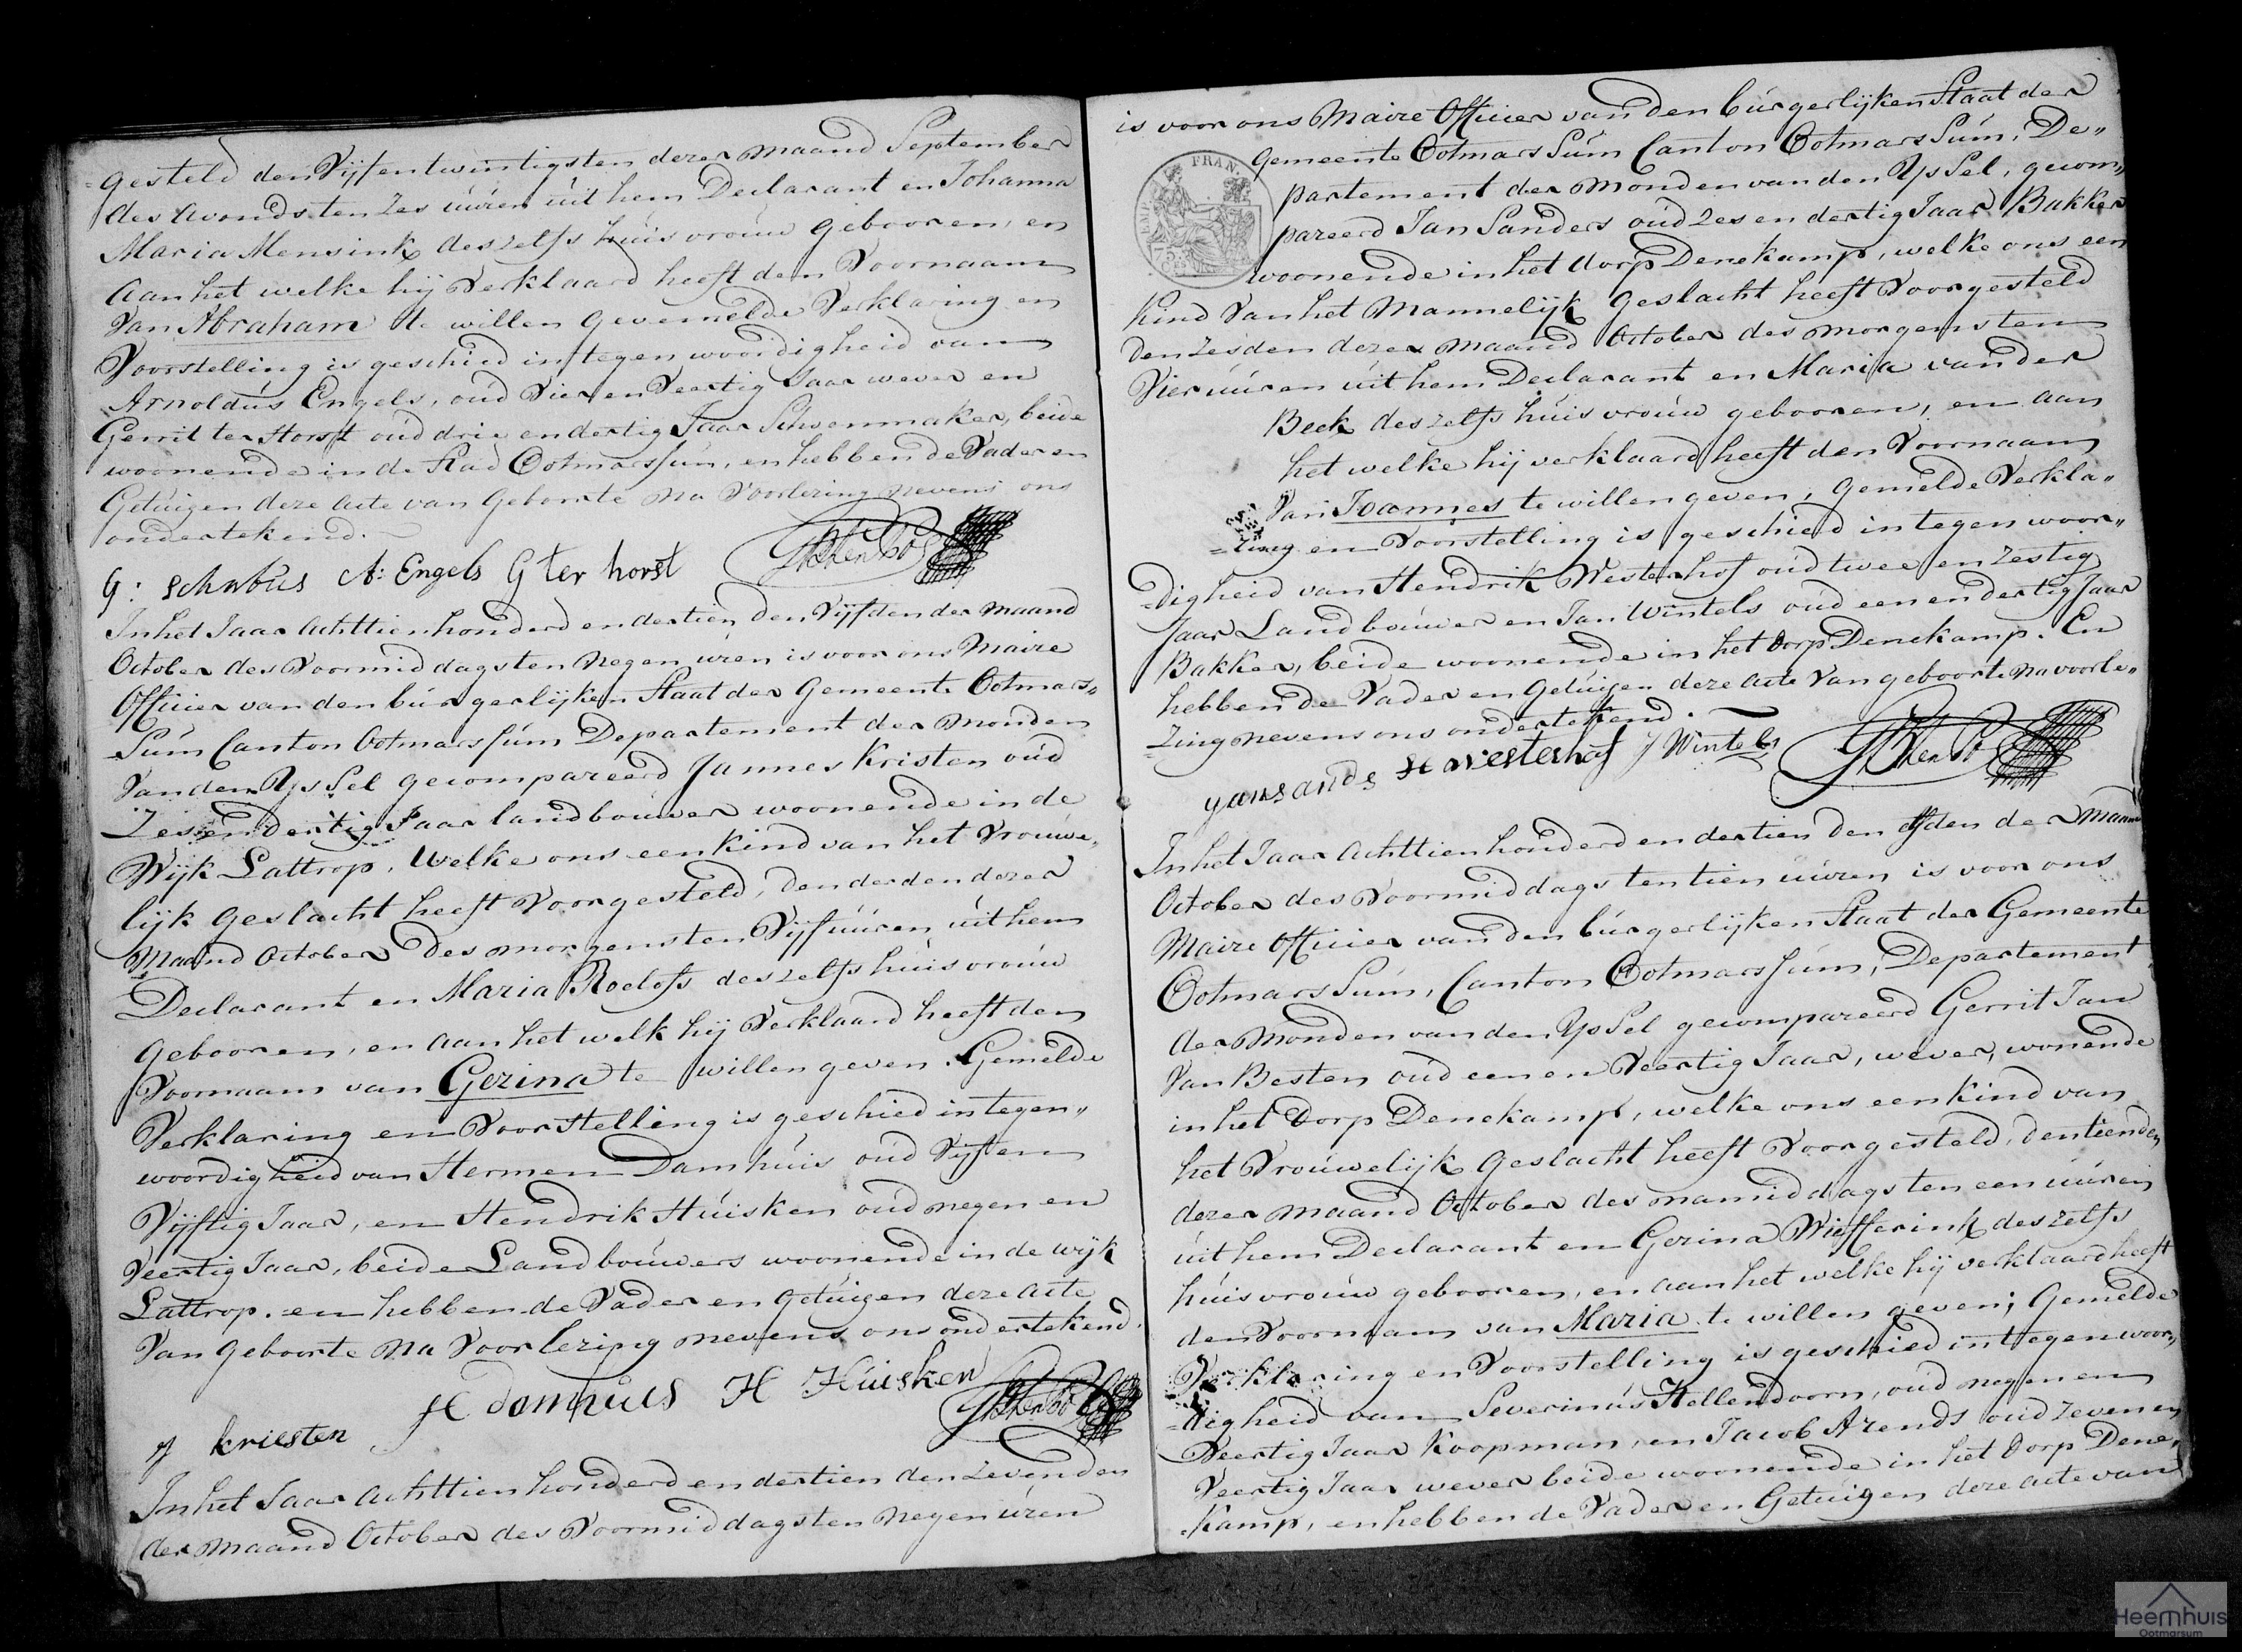 =gesteld den Vijfentwintigsten dezer maand September
des avonds ten zes uúren úit hem Declarant en Johanna
Maria Mensink deszelfs húisvroúw gebooren, en
aan het welke hij Verklaard heeft den Voornaam
Van Abraham te willen geven gemelde Verklaring en
Voorstelling is geschied in tegenwoordigheid van
Arnoldús Engels, oúd Vier en Veertig Jaar wever en
Gerrit ter Horst oúd drie en dertig Jaar Schoenmaker, beide
woonende in de Stad Ootmarssúm, en hebben de Vader en
Getúigen deze acte van Geboorte na Voorlezing nevens ons
ondertekend.
G: Schabús A: Engels G ter horst
In het Jaar achttienhonderd en dertien den Vijfden der maand
October des Voormiddags ten negen uren is voor ons Maire
Officier van den búrgerlijken Staat der Gemeente Ootmars„
Súm Canton Ootmarssúm Departement der monden
Van den Ijssel gecompareerd Jannes Kristen oúd
Zes en dertig Jaar landboúwer woonende in de
Wijk Lattrop, Welke ons een kind van het Vroúwe„
lijk Geslacht heeft Voorgesteld, den derden dezer
Maand October des morgens ten Vijf uúren úit hem
Declarant en Maria Roelofs deszelfs húisvroúw
Gebooren, en aan het welk hij Verklaard heeft den
Voornaam van Gezina te willen geven. Gemelde
Verklaring en Voorstelling is geschied in tegen„
woordigheid van Hermen Damhúis oúd Vijf en
Vijftig Jaar, en Hendrik Húisken oúd negen en
Veertig Jaar, beide Landboúwers woonende in de wijk
Lattrop. en hebben de Vader en getúigen deze acte
Van Geboorte na Voorlezing nevens ons ondertekend.
J kriesten H damhuis H Huisken
In het Jaar achttienhonderd en dertien den Zevenden
der maand October des Voormiddags ten negen uren
is voor ons Maire Officier van den búrgerlijken Staat der
FRAN.
Gemeente Ootmarssúm Canton Ootmarssúm, De„
partement der monden van den Ijssel, gecom„
pareerd Jan Sanders oúd zes en dertig Jaar Bakker
woonende in het dorp Denekamp, welke ons een
Kind Van het Mannelijk Geslacht heeft Voorgesteld
Den zesden dezer maand October des morgens ten
Vier uúren úit hem Declarant en Maria van der
Beek deszelfs húisvroúw gebooren, en aan
het welke hij verklaard heeft den Voornaam
Van Joannes te willen geven, gemelde Verkla„
=ring en Voorstelling is geschied in tegenwoor„
=digheid van Hendrik Westerhof oúd twee en zestig
Jaar Landboúwer en Jan Wintels oúd een en dertig Jaar
Bakker, beide woonende in het dorp Denekamp. En
hebben de Vader en Getúigen deze acte Van geboorte na voorle„
=zing nevens ons ondertekend.
yan sands H westerhof J Wintels
In het Jaar achttienhonderd en dertien den elfden der maand
October des Voormiddags ten tien uúren is voor ons
Maire Officier van den búrgerlijken Staat der Gemeente
Ootmarssúm, Canton Ootmarssúm, Departement
der Monden van den Ijssel gecompareerd Gerrit Jan
Van Besten oúd een en Veertig Jaar, wever, wonende
in het Dorp Denekamp, welke ons een kind van
het Vroúwelijk Geslacht heeft Voorgesteld, den tienden
dezer maand October des namiddags ten een uúren
úit hem Declarant en Gezina Wiefferink deszelfs
húisvroúw gebooren, en aan het welke hij verklaard heeft
den Voornaam van Maria te willen geven; Gemelde
Verklaring en Voorstelling is geschied in tegenwoor„
=digheid van Severinús Hellendoorn, oúd negen en
Veertig Jaar Koopman, en Jacob Arends oúd zeven en
Veertig Jaar wever beide woonende in het Dorp Dene„
=kamp, en hebben de Vader en Getuigen deze acte van
Heemhuis
Ootmarsum